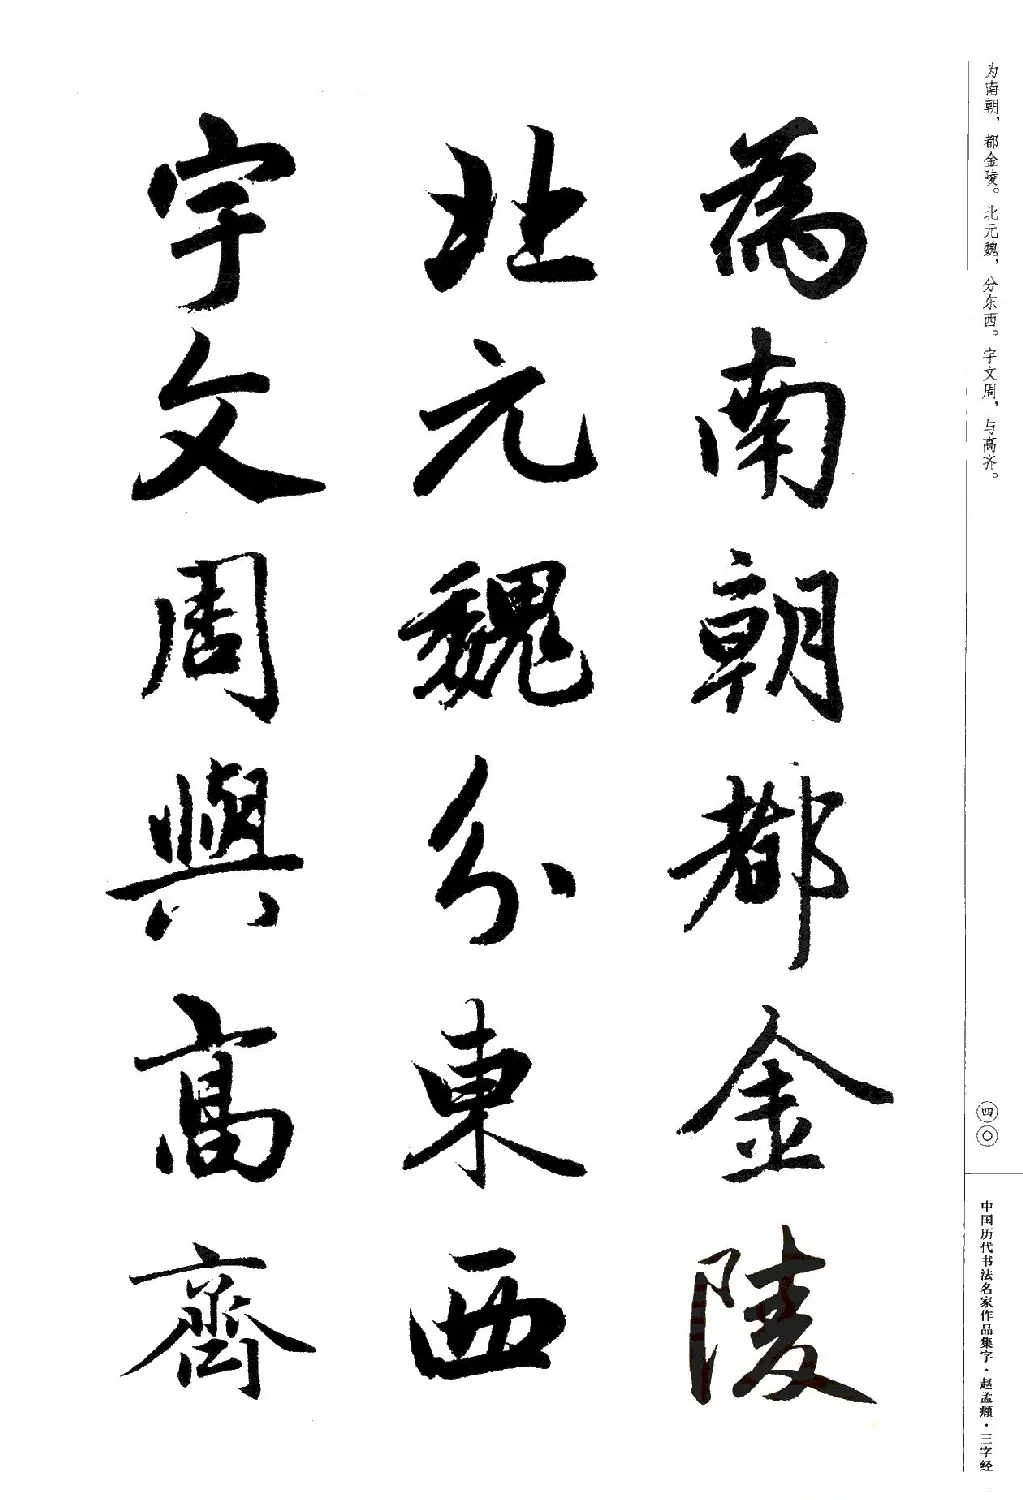 为南朝，都金陵。北元魏，分东西。宇文周，与高齐。
為南朝都金陵
北元魏分東西
宇文周與高齊
四〇
中国历代书法名家作品集字·赵孟頫·三字经